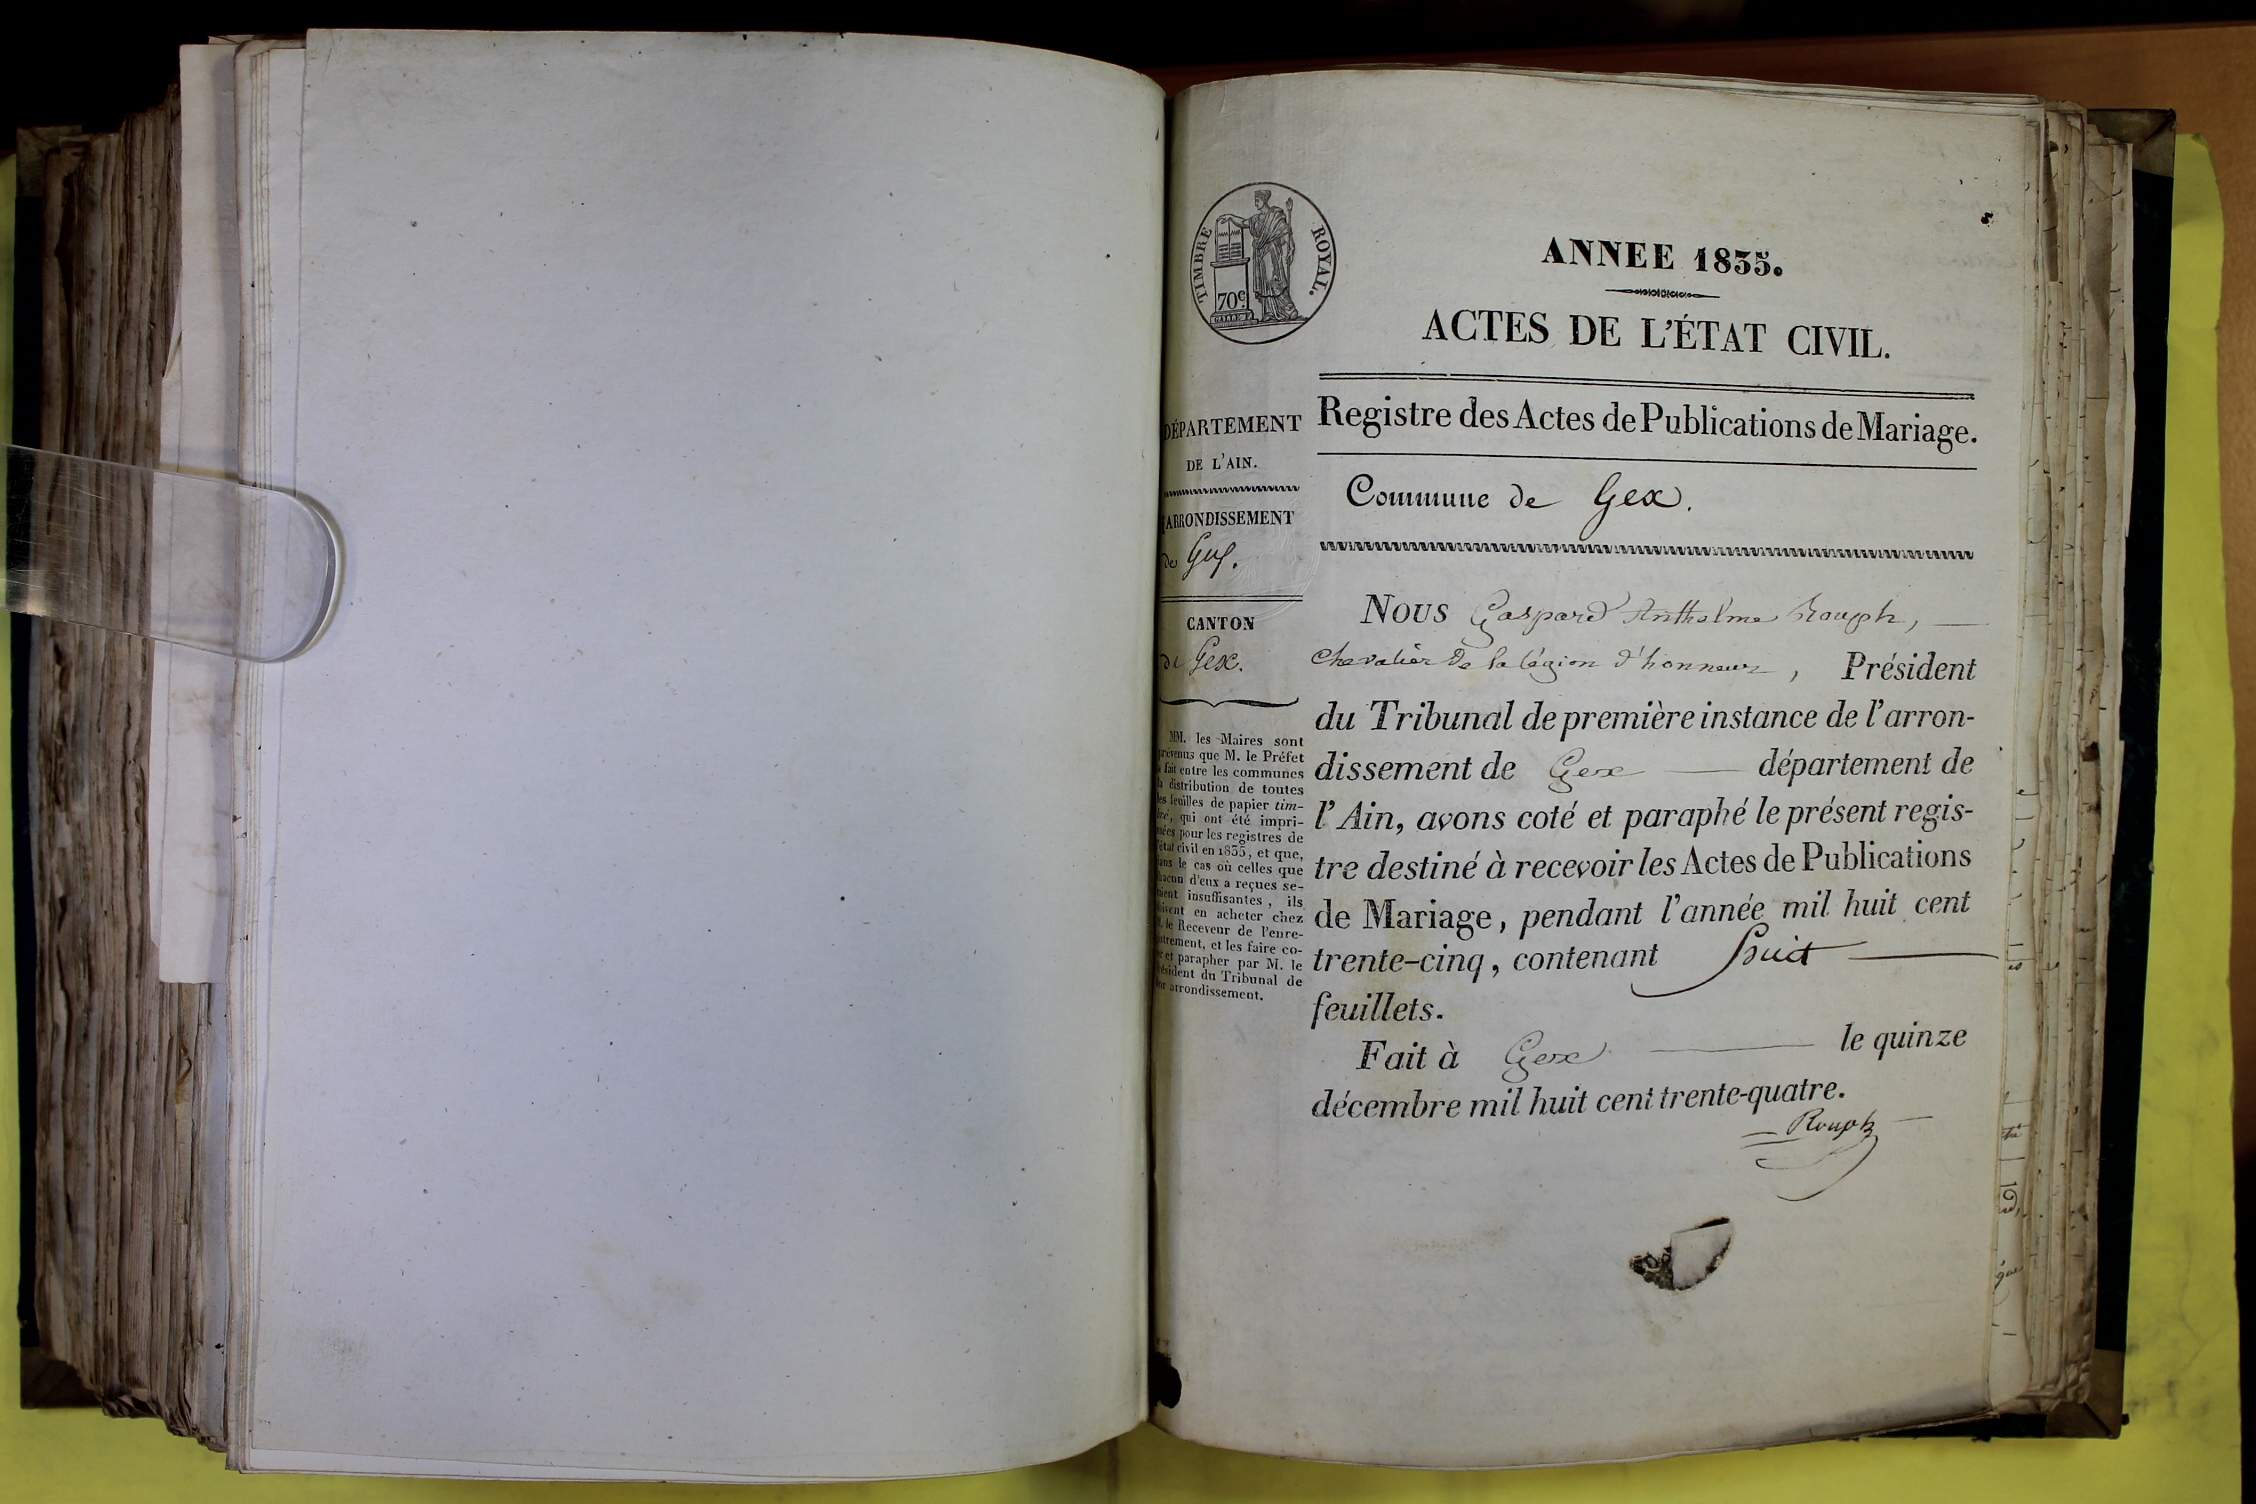 TIMBRE ROYAL.
70c.
ANNEE 1835.
ACTES DE L'ÉTAT CIVIL.
DÉPARTEMENT
DE L'AIN.
ARRONDISSEMENT
de Gex.
CANTON
de Gex.
MM. les Maires sont
prévenus que M. le Préfet
a fait entre les communes
la distribution de toutes
les feuilles de papier tim-
bré, qui ont été impri-
mées pour les registres de
l'état civil en 1835, et que,
dans le cas où celles que
chacun d'eux a reçues se-
raient insuffisantes, ils
doivent en acheter chez
M. le Receveur de l'enre-
gistrement, et les faire co-
ter et parapher par M. le
Président du Tribunal de
leur arrondissement.
Registre des Actes de Publications de Mariage.
Commune de Gex.
Nous Gaspard Anthelme Rouph,
chevalier de la légion d'honneur, Président
du Tribunal de première instance de l'arron-
dissement de Gex département de
l'Ain, avons coté et paraphé le présent regis-
tre destiné à recevoir les Actes de Publications
de Mariage, pendant l'année mil huit cent
trente-cinq, contenant huit
feuillets.
Fait à Gex le quinze
décembre mil huit cent trente-quatre.
Rouph